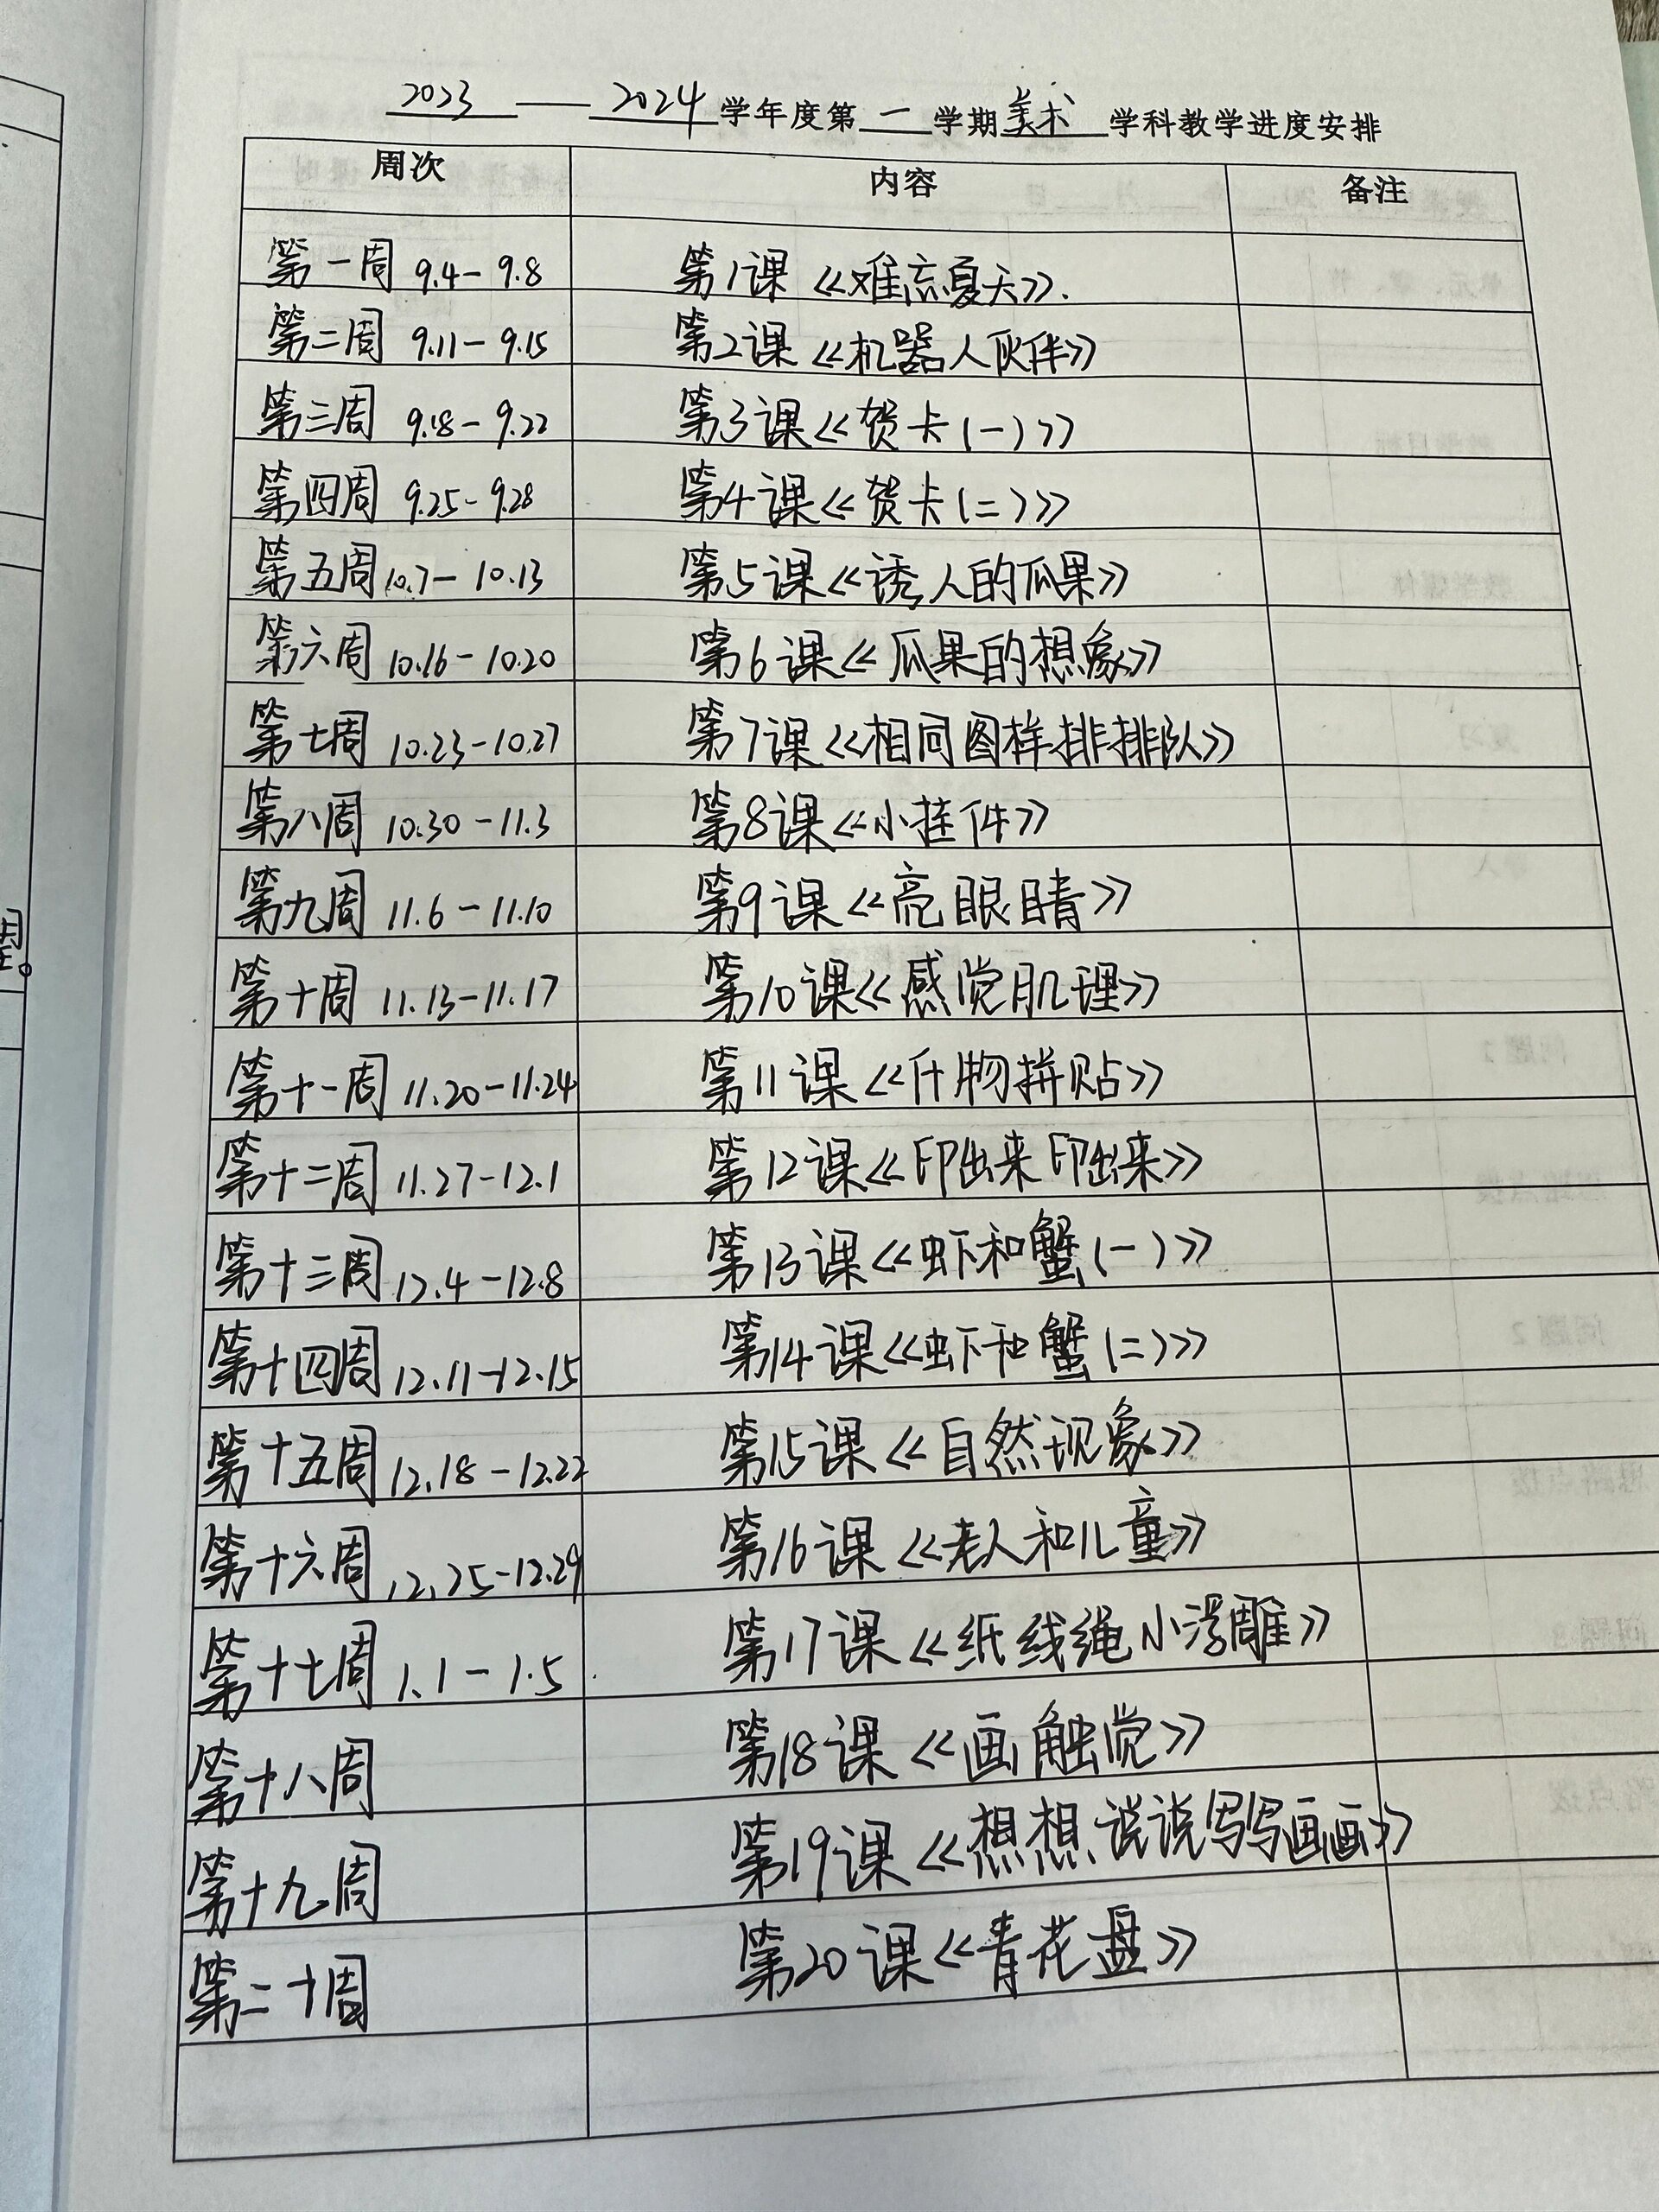 2023 —— 2024 学年度第 一 学期 美术 学科教学进度安排
周次 内容 备注
第一周 9.4-9.8 第1课《难忘夏天》.
第二周 9.11-9.15 第2课《机器人伙伴》
第三周 9.18-9.22 第3课《贺卡(一)》
第四周 9.25-9.28 第4课《贺卡(二)》
第五周 10.7-10.13 第5课《诱人的瓜果》
第六周 10.16-10.20 第6课《瓜果的想象》
第七周 10.23-10.27 第7课《相同图样排排队》
第八周 10.30-11.3 第8课《小挂件》
第九周 11.6-11.10 第9课《亮眼睛》
第十周 11.13-11.17 第10课《感觉肌理》
第十一周 11.20-11.24 第11课《什物拼贴》
第十二周 11.27-12.1 第12课《印出来印出来》
第十三周 12.4-12.8 第13课《虾和蟹(一)》
第十四周 12.11-12.15 第14课《虾和蟹(二)》
第十五周 12.18-12.22 第15课《自然现象》
第十六周 12.25-12.29 第16课《老人和儿童》
第十七周 1.1-1.5 第17课《纸线绳小浮雕》
第十八周 第18课《画触觉》
第十九周 第19课《想想说说写写画画》
第二十周 第20课《青花盘》